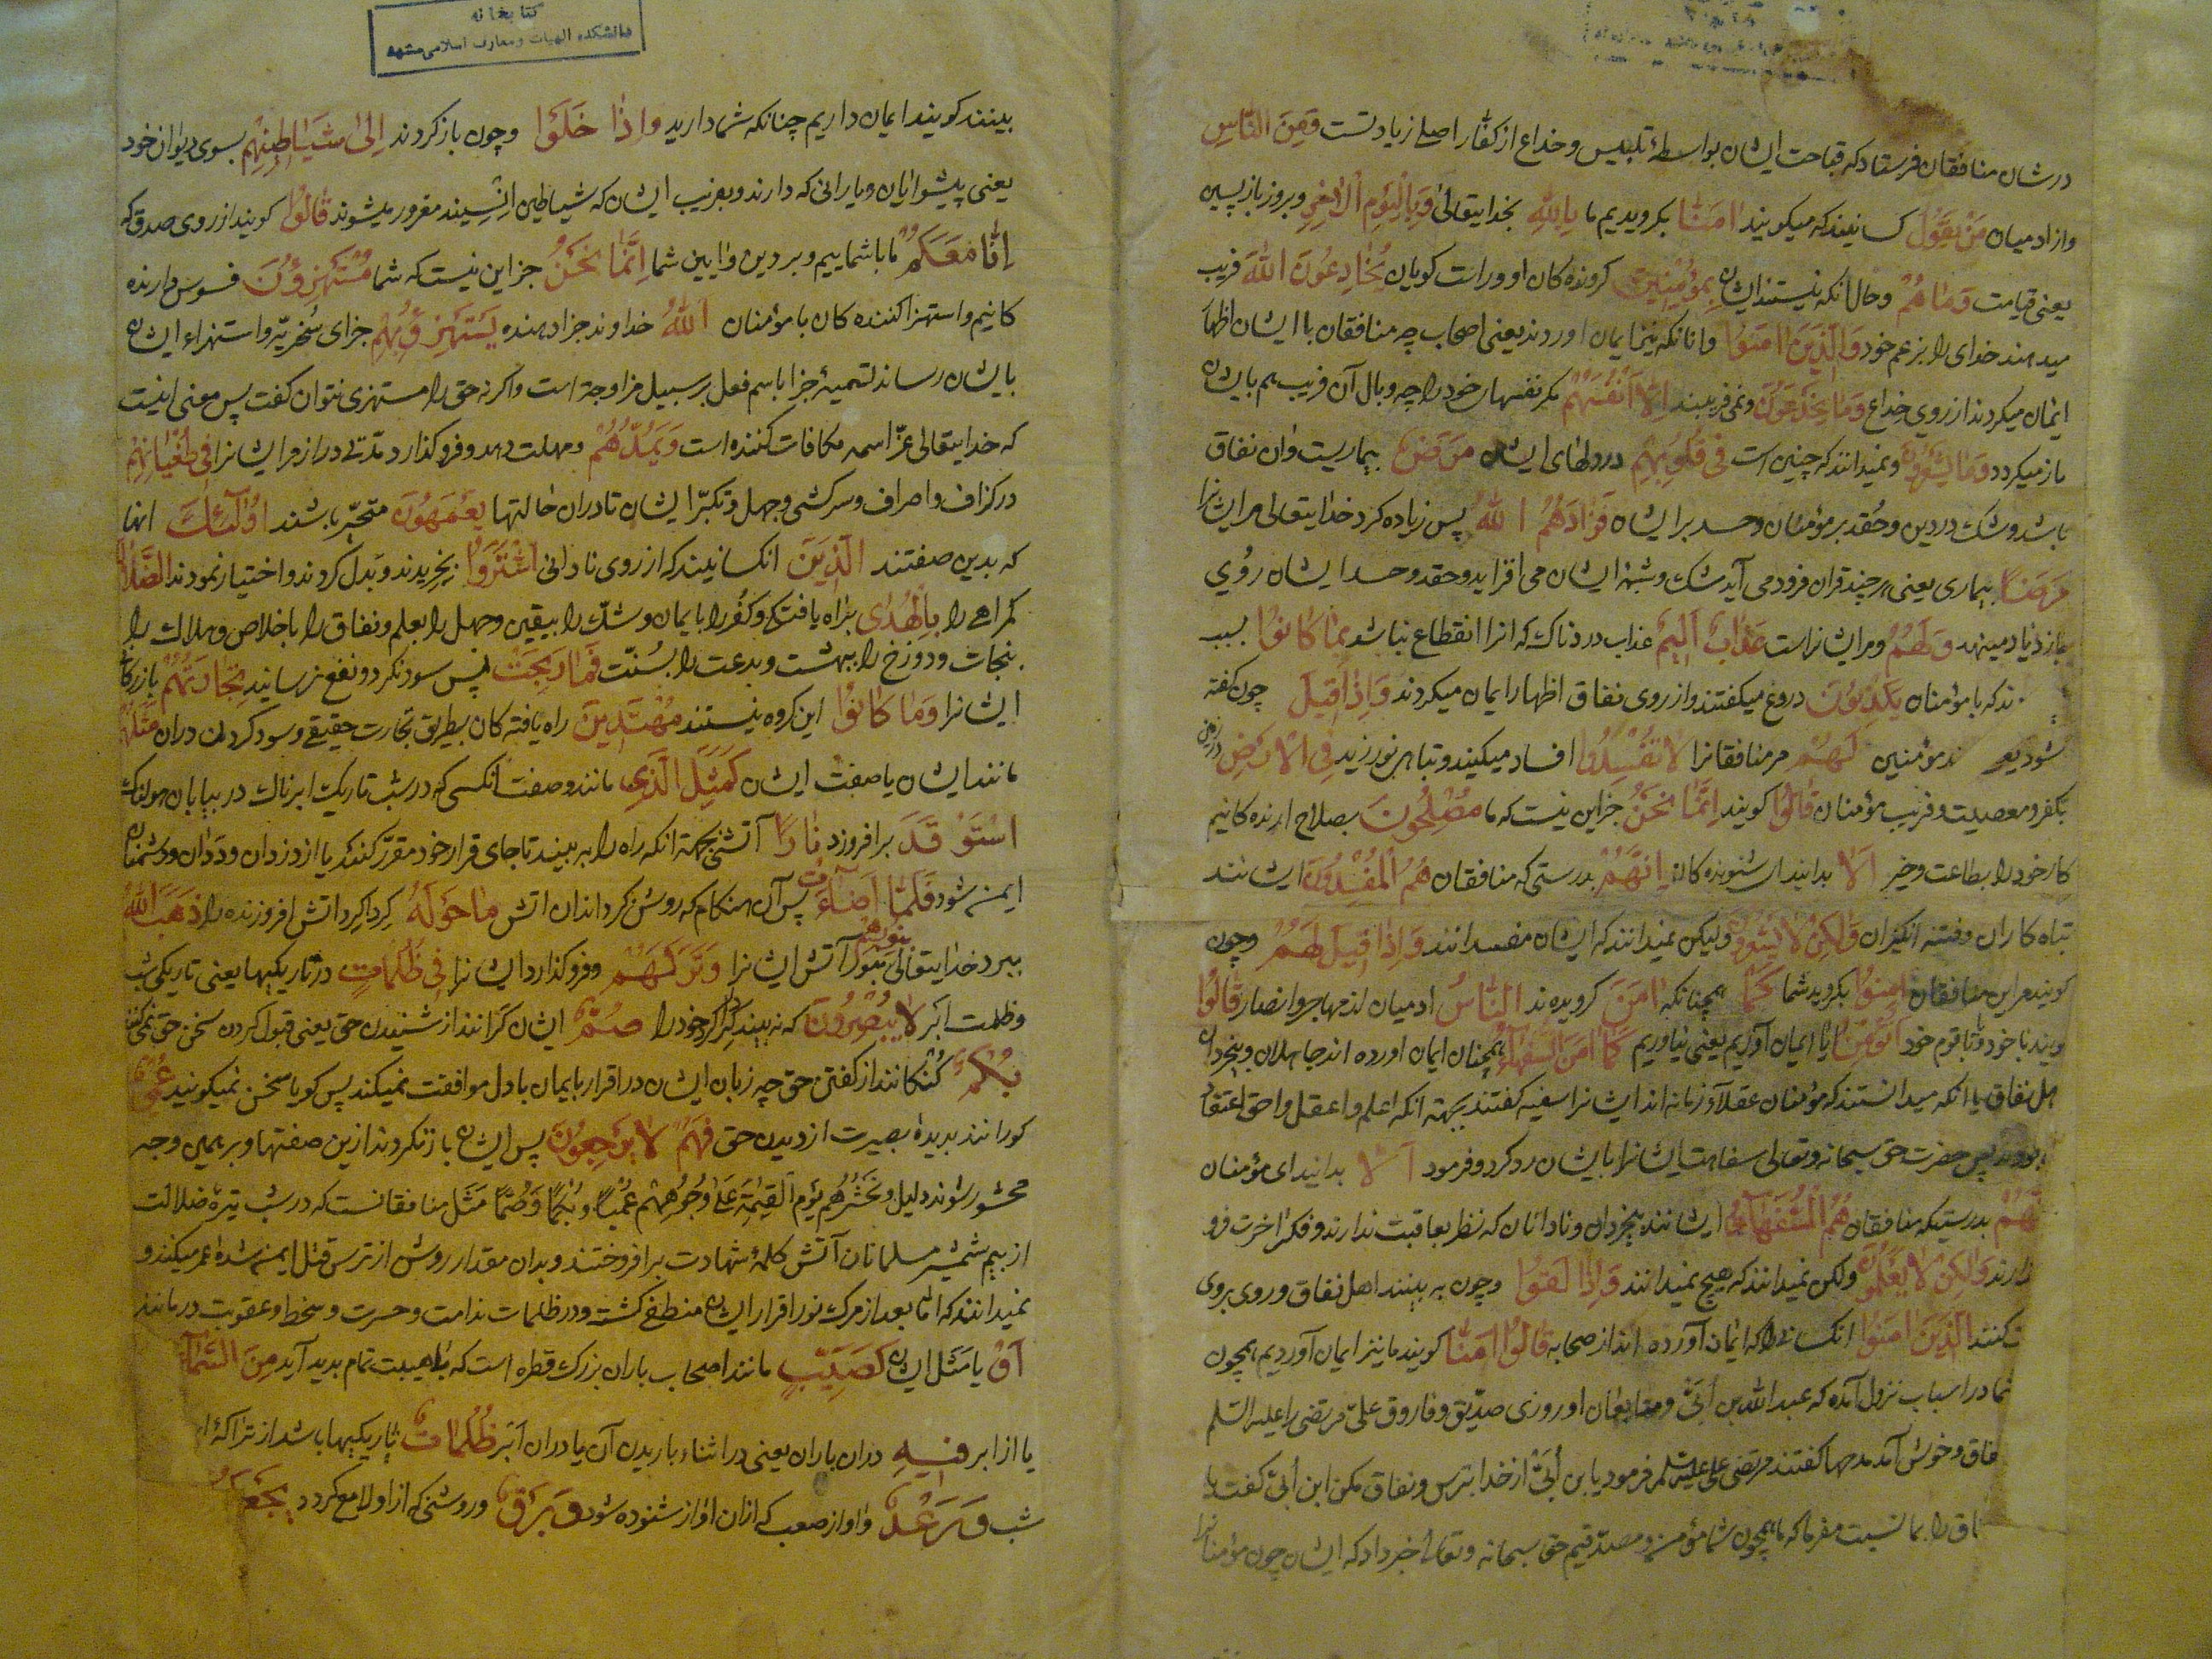 درشان منافقان فرستاد که قباحت ایشان بواسطهٔ تلبیس و خداع از کفّار اصلے زیادتست وَمِنَ النَّاسِ
واز ادمیان مَنْ یَقُوْلُ کسانیند که میکویند اٰمَنَّا بکرویدیم ما بِاللهِ بخدایتعالی وَبِالْیَوْمِ اْلاٰخِرِ وبروز بازپسین
یعنی قیامت وَمٰا هُمْ وحال آنکه نیستند ایشان بِمُؤْمِنِیْنَ کرونده کان او وراست کویان یُخٰادِعُوْنَ اللهَ فریب
میدهند خدای را بزعم خود وَالَّذِیْنَ اٰمَنُوْا وانانکه نیز ایمان اوردند یعنی اصحاب چه منافقان با ایشان اظهار
ایمان میکردند از روی خداع وَمٰا یَخْدَعُوْنَ ونمی فریبند اِلاّٰ اَنْفُسَهُمْ مکر نفسهای خود را چه وبال آن فریب هم بایشان
باز میکردد وَمٰا یَشْعُرُوْنَ ونمیدانند که چنین است فِیْ قُلُوْبِهِمْ در دلهای ایشان مَرَضٌ بیماریست وان نفاق
باشد وشک در دین وحُقد بر مؤمنان وحسد بر ایشان فَزٰادَهُمُ اللهُ پس زیاده کرد خدایتعالی مر ایشانرا
مَرَضًا بیماری یعنی هر چند قران فرود می آید شک وشبههٔ ایشان می افزاید وحقد وحسد ایشان رُوی
باز دیاد مینهد وَلَهُمْ ومر ایشانراست عَذٰابٌ اَلِیْمٌ عذاب دردناک که انرا انقطاع نباشد بِمٰا کٰانُوْا بسبب
ند که با مؤمنان یَکْذِبُوْنَ دروغ میکفتند واز روی نفاق اظهار ایمان میکردند وَاِذٰا قِیْلَ چون کفته
شود یعنی مؤمنین لَهُمْ مر منافقانرا لاٰ تُفْسِدُوْا افساد میکنید وتباهی نورزید فِی الْاَرْضِ در زمین
بکفر ومعصیت وفریب مؤمنان قٰالُوْا کویند اِنَّمٰا نَحْنُ جز این نیست که ما مُصْلِحُوْنَ بصلاح ارنده کانیم
کار خود را بطاعت وخیر اَلاٰ بدانید ای شنونده کان اِنَّهُمْ بدرستی که منافقان هُمُ الْمُفْسِدُوْنَ ایشانند
تباه کاران وفتنه انکیزان وَلٰکِنْ لاٰ یَشْعُرُوْنَ ولیکن نمیدانند که ایشان مفسدانند وَاِذٰا قِیْلَ لَهُمْ وچون
کویند مر این منافقان اٰمِنُوْا بکروید شما کَمٰا همچنانکه اٰمَنَ کرویده ند النّٰاسُ ادمیان از مهاجر وانصار قٰالُوْا
ویند با خود وبا قوم خود اَنُؤْمِنُ ایا ایمان آوریم یعنی نیاوریم کَمٰا اٰمَنَ السُّفَهٰاءُ همچنان ایمان اورده اند جاهلان وبیخردان
هل نفاق با انکه میدانستند که مؤمنان عقلآء زمانه اند ایشانرا سفیه کفتند بجهة انکه اعلم واعقل واحق اعتقاد
بودند پس حضرت حق سبحانه وتعالی سفاهت ایشانرا بایشان رد کرد وفرمود اَلاٰ بدانید ای مؤمنان
اِنَّهُمْ بدرستیکه منافقان هُمُ السُّفَهٰاءُ ایشانند بیخردان ونادانان که نظر بعاقبت ندارند وفکر اخرت فرو
دارند وَلٰکِنْ لاٰ یَعْلَمُوْنَ ولکن نمیدانند که هیچ نمیدانند وَاِذٰا لَقُوْا وچون به بینند اهل نفاق وروی بروی
کنند الَّذِیْنَ اٰمَنُوْا انکسانرا که ایمان آورده اند از صحابه قٰالُوْا اٰمَنّٰا کویند ما نیز ایمان آوردیم همچون
شما در اسباب نزول آمده که عبد الله بن اُبَیّ ومتابعان او روزی صدّیق وفاروق علیّ مرتضی را علیه السّلم
فاق وخوش آمد مدحها کفتند مرتضی علی علیه السّلم فرمود یا بن اُبَیّ از خدا بترس ونفاق مکن ابن اُبیّ کفت یا
اق را بما نسبت مفرما که ما همچون شما مؤمن ومصدّقیم حق سبحانه وتعالی خبر داد که ایشان چون مؤمنانرا
کتابخانه
دانشکده الهیات ومعارف اسلامی مشهد
بینند کویند ایمان داریم چنانکه شما دارید وَاِذٰا خَلَوْا وچون باز کردند اِلیٰ شَیٰاطِیْنِهِمْ بسوی دیوان خود
یعنی پیشوایان ویارانی که دارند وبفریب ایشان که شیاطین اِنْسِیند مغرور میشوند قٰالُوْا کویند از روی صدق که
اِنّٰا مَعَکُمْ ما با شماییم وبر دین وایین شما اِنَّمٰا نَحْنُ جز این نیست که شما مُسْتَهْزِؤُنَ فسوس دارنده
کانیم واستهزا کننده کان با مؤمنان اَللهُ خداوند جزا دهنده یَسْتَهْزِؤُ بِهِمْ جزای سُخریّه واستهزاء ایشان
بایشان رساند تسمیهٔ جزا باسم فعل بر سبیل مزاوجة است واکرنه حق را مستهزی نتوان کفت پس معنی اینست
که خدایتعالی عزّ اسمه مکافات کننده است وَیَمُدُّهُمْ ومهلت دهد وفرو کذارد مدّتے دراز مر ایشانرا فِیْ طُغْیٰانِهِمْ
در کزاف واصراف وسرکشی وجهل وتکبّر ایشان تا دران حالتها یَعْمَهُوْنَ متحیّر باشند اُوْلٰئِكَ انها
که بدین صفتند الَّذِیْنَ انکسانیند که از روی نادانی اشْتَرَوُا بخریدند وبدل کردند واختیار نمودند الضَّلاٰلَةَ
کمراهے را بِالْهُدٰی براه یافتکی وکفر را بایمان وشك را بیقین وجهل را بعلم ونفاق را باخلاص وهلاك را
بنجات ودوزخ را ببهشت وبدعت را بسُنّت فَمٰا رَبِحَتْ پس سود نکرد ونفع نرسانید تِجٰارَتُهُمْ بازرکانی
ایشانرا وَمٰا کٰانُوْا این کروه نیستند مُهْتَدِیْنَ راه یافته کان بطریق تجارت حقیقے وسود کردن دران مَثَلُهُمْ
مانند ایشان یا صفت ایشان کَمَثَلِ الَّذِی مانند وصفت انکسی که در شب تاریك ابرناك در بیابان هولناك
اسْتَوْقَدَ برافروزد نٰارًا آتشی بجهة انکه راه را به بیند تا جای قرار خود مقرّر کند یا از دزدان وددان ودشمنان
ایمن شود فَلَمّٰا اَضٰاءَتْ پس آن هنکام که روشن کرداند ان اتش مٰا حَوْلَهُ کرداکرد اتش افروزنده را ذَهَبَ اللهُ
ببرد خدایتعالی بِنُوْرِهِمْ آتش ایشانرا وَتَرَکَهُمْ وفرو کذارد ایشانرا فِیْ ظُلُمٰاتٍ در تاریکیها یعنی تاریکی شب
وظلمت ابر لاٰ یُبْصِرُوْنَ که نه بینند کرداکرد خود را صُمٌّ ایشان کرانند از شنیدن حق یعنی قبول کردن سخن حق نمی کنند
بُکْمٌ کُنکانند از کفتن حق چه زبان ایشان در اقرار بایمان با دل موافقت نمیکند پس کویا سخن نمیکویند عُمْیٌ
کورانند بدیدهٔ بصیرت از دیدن حق فَهُمْ لاٰ یَرْجِعُوْنَ پس ایشان باز نکردند ازین صفتها وبر همین وجه
محشور شوند دلیل ونَحْشُرُهُمْ یَوْمَ الْقِیٰمَةِ عَلیٰ وُجُوهِهِمْ عُمْیًا وَبُکْمًا وَصُمًّا مَثَل منافقانست که در شب تیرهٔ ضلالت
از بیم شمشیر مسلمانان آتش کلمهٔ شهادت برافروختند وبدان مقدار روش از ترس قتل ایمن شده عمر میکنند و
نمیدانند که اما بعد از مرك نور اقرار ایشان منطفی کشته ودر ظلمات ندامت وحسرت وسخط وعقوبت درمانند
اَوْ یا مَثَل ایشان کَصَیِّبٍ مانند اصحاب باران بزرك قطره است که با هیبت تمام بدید آید مِنَ السَّمٰاءِ
یا از ابر فِیْهِ دران باران یعنی در اثناء باریدن آن یا دران ابر ظُلُمٰاتٌ تاریکیها باشد از تراکم
شب وَرَعْدٌ واواز صعب که ازان اواز شنوده شود وَبَرْقٌ وروشنی که ازاو لامع کردد یَجْعَلُوْنَ